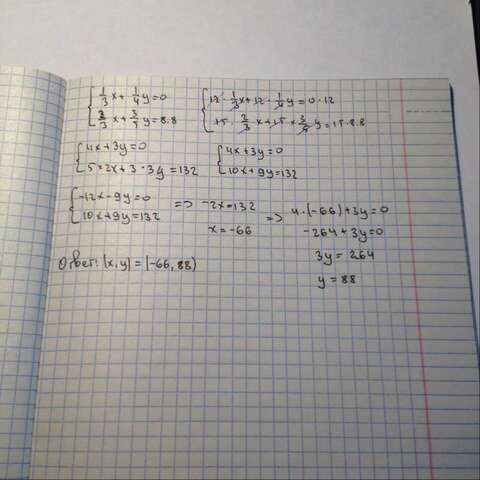 1/3 x + 1/4 y = 0
2/3 x + 3/5 y = 8.8
12 · 1/3 x + 12 · 1/4 y = 0 · 12
15 · 2/3 x + 15 · 3/5 y = 15 · 8.8
4x + 3y = 0
5 · 2x + 3 · 3y = 132
4x + 3y = 0
10x + 9y = 132
-12x - 9y = 0
10x + 9y = 132
=> -2x = 132
x = -66
=> 4 · (-66) + 3y = 0
-264 + 3y = 0
3y = 264
y = 88
Ответ: (x, y) = (-66, 88)